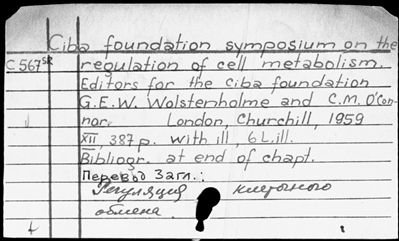 Ciba foundation symposium on the
C 567 SR regulation of cell metabolism.
Editors for the ciba foundation
G.E.W. Wolstenholme and C.M. O'Con-
nor. London, Churchill, 1959
XII, 387 p. with ill, 6 L.ill.
Bibliogr. at end of chapt.
Перевод Загл.:
Регуляция клеточного
обмена.